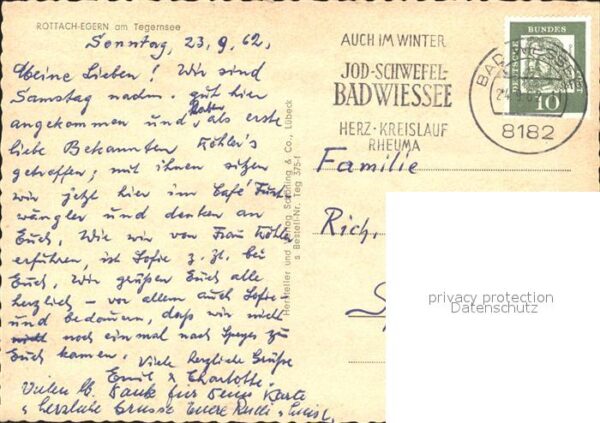 ROTTACH-EGERN am Tegernsee
Sonntag, 23.9.62,
Meine Lieben! Wir sind
Samstag nachm. gut hier
angekommen und haben als erste
liebe Bekannten Köhler's
getroffen; mit ihnen sitzen
wir jetzt hier im Café Furt
wängler und denken an
Euch. Wie wir von Frau Köhler
erfuhren, ist Sofie z. Zt. bei
Euch. Wir grüßen Euch alle
herzlich – vor allem auch Sofie –
und bedauern, daß wir nicht
nicht noch ein mal nach Speyer zu
Euch kamen. Viele herzliche Grüße
Emil & Charlotte.
Vielen lb. Dank für Deine Karte
u herzliche Grüsse Eure Rudi u Luise
Hersteller und Verlag Schöning & Co., Lübeck
s Bestell-Nr. Teg 375-f
AUCH IM WINTER
JOD-SCHWEFEL-
BAD WIESSEE
HERZ·KREISLAUF
RHEUMA
BAD WIESSEE
8182
DEUTSCHE BUNDESPOST
10
Familie
Rich.
privacy protection
Datenschutz